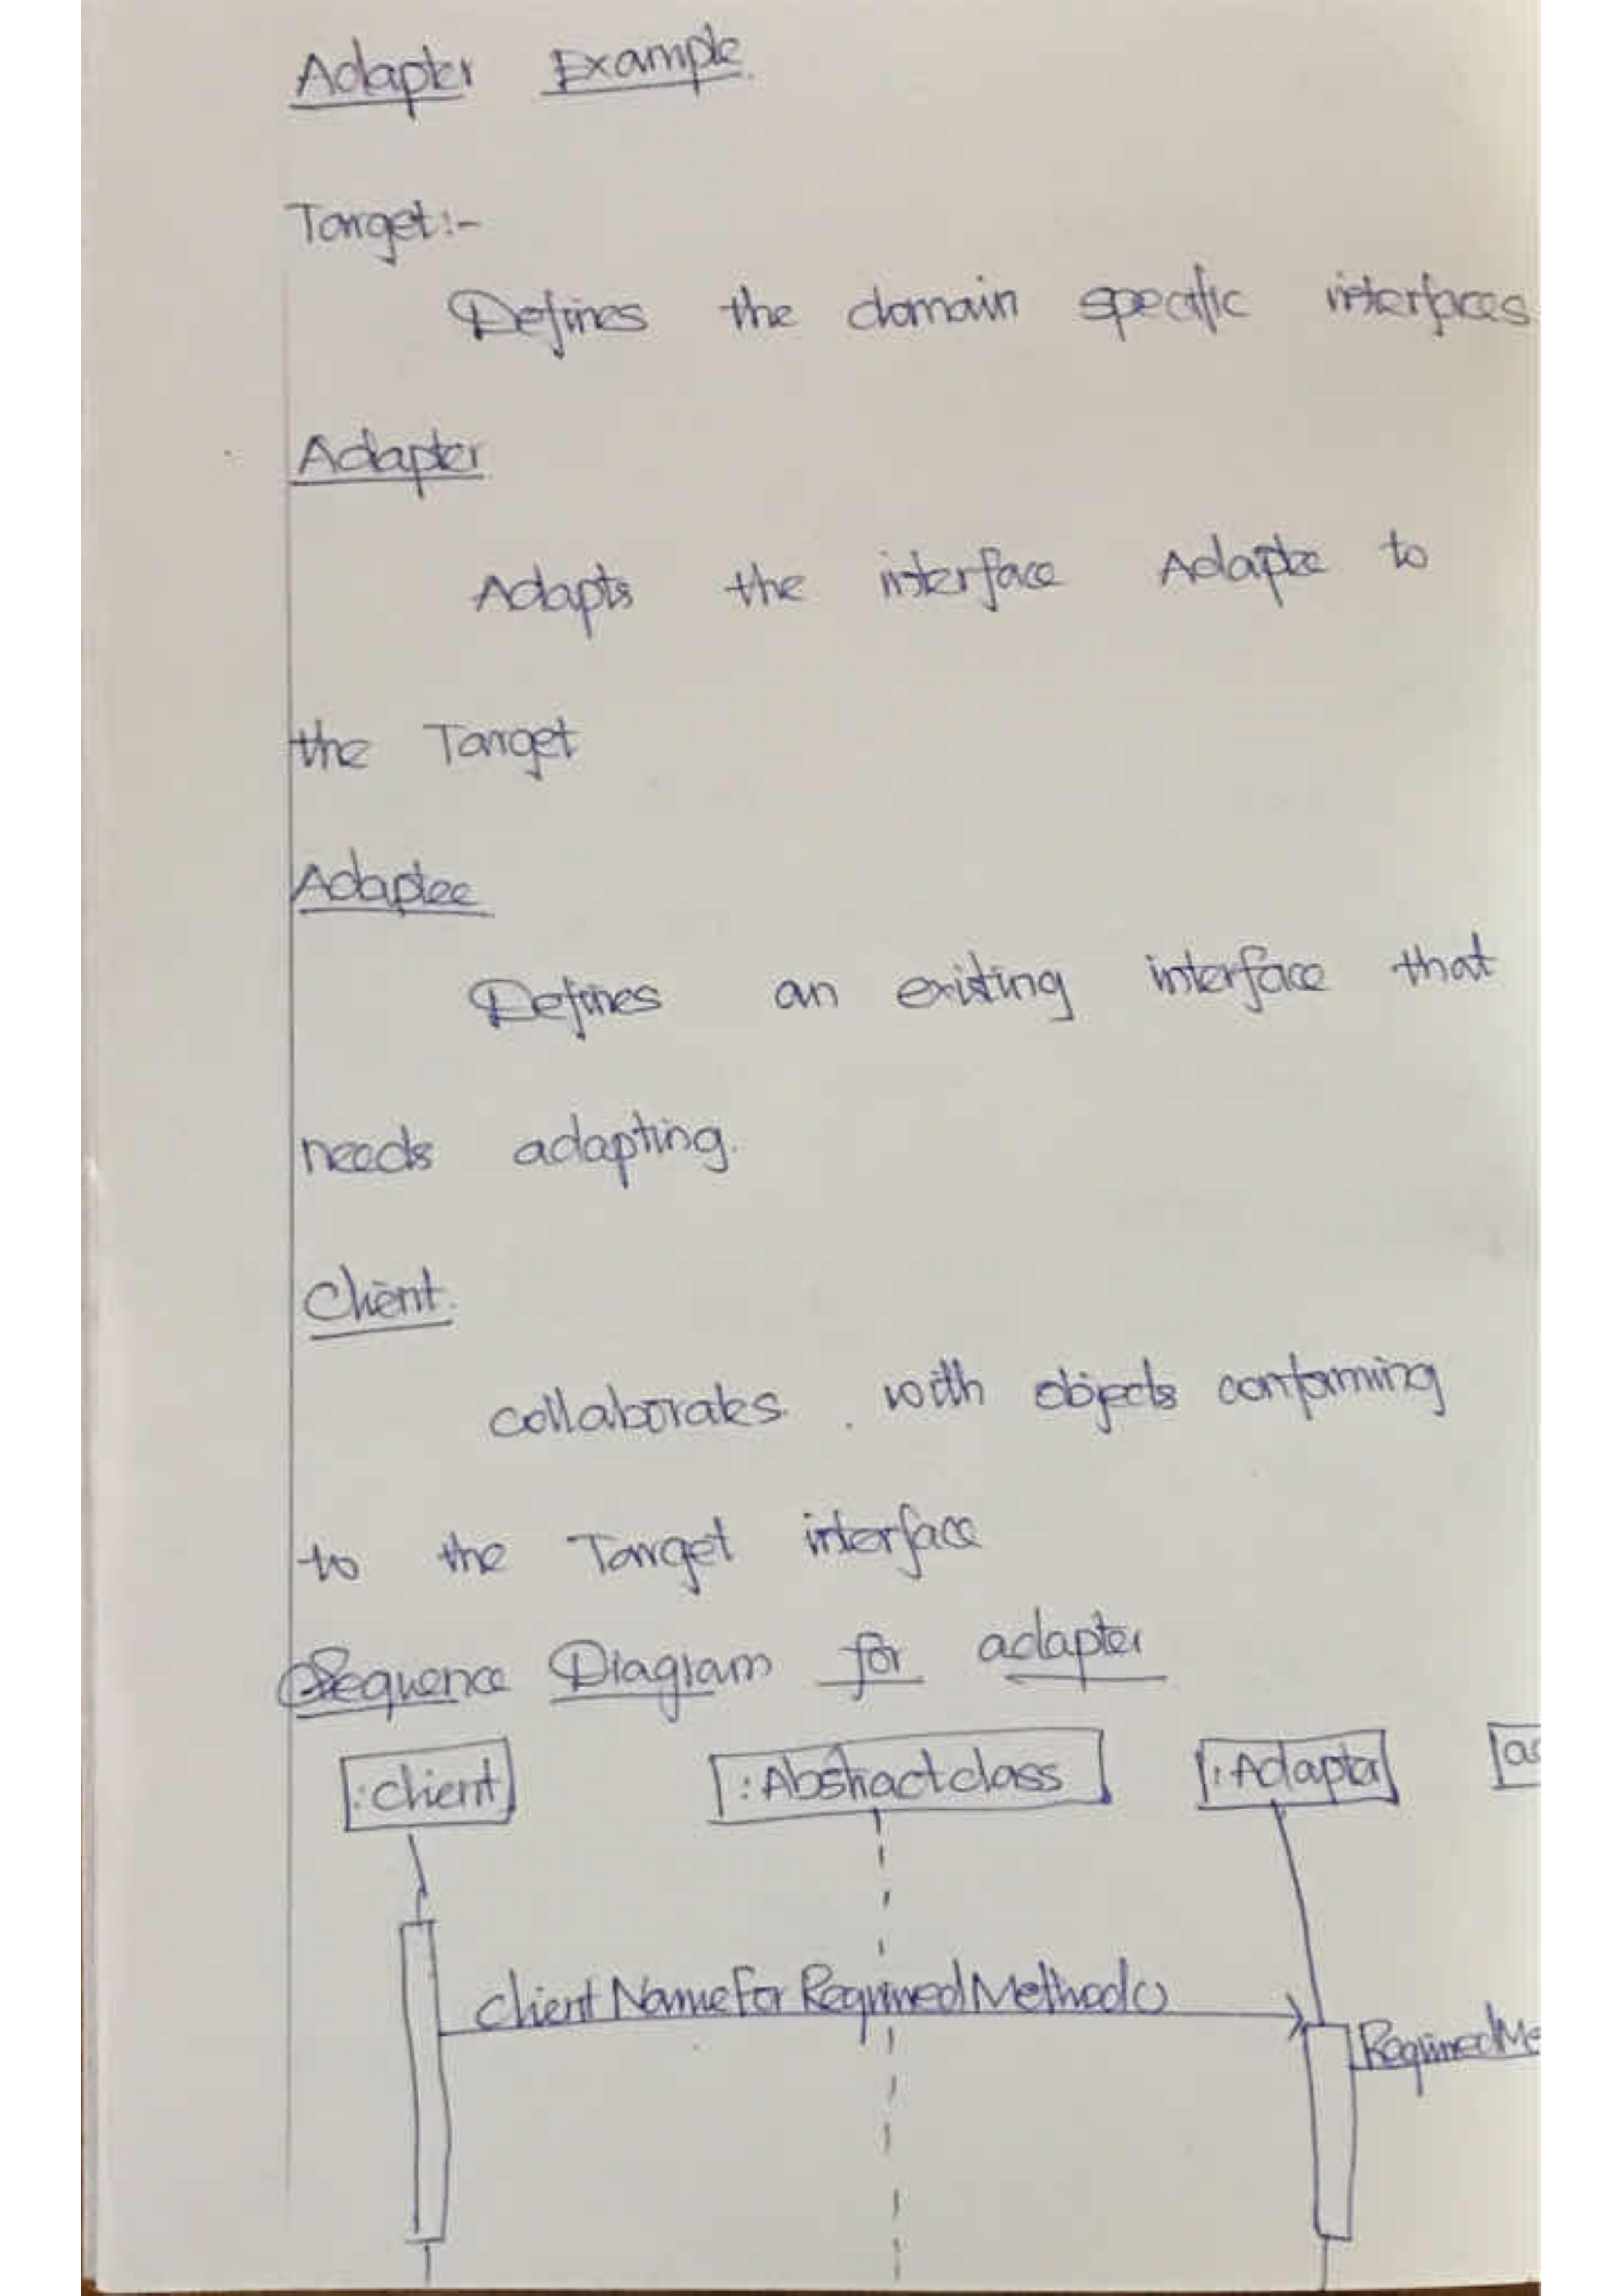 Adapter Example.
Target:-
Defines the domain specific interfaces
Adapter
Adapts the interface Adaptee to
the Target
Adaptee
Defines an existing interface that
needs adapting.
Client.
collaborates. with objects conforming
to the Target interface
Sequence Diagram for adapter
:client :Abstractclass :Adapter
ClientNameForRequiredMethod()
RequiredMe